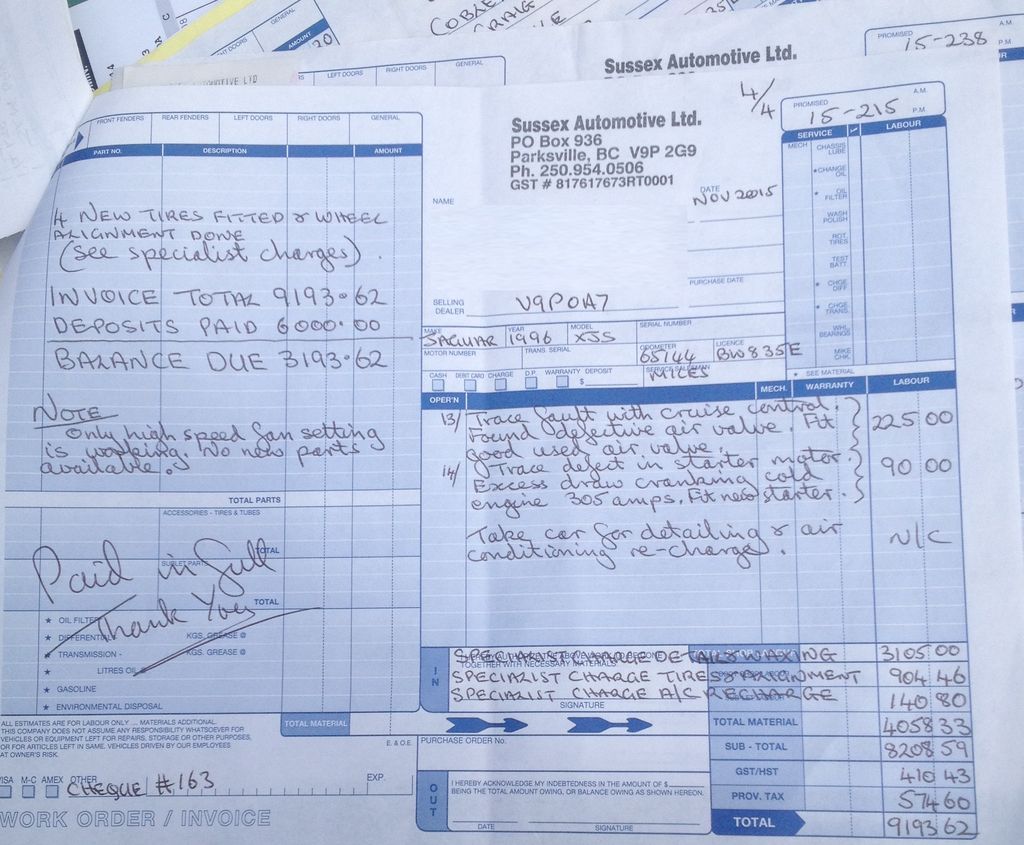 COBLE
CRAIG
GENERAL
AMOUNT
20
RIGHT DOORS
LEFT DOORS
RIGHT DOORS
GENERAL
Sussex Automotive Ltd.
PROMISED
A.M.
15-238
P.M.
FRONT FENDERS
REAR FENDERS
LEFT DOORS
RIGHT DOORS
GENERAL
PART NO.
DESCRIPTION
AMOUNT
4 NEW TIRES FITTED & WHEEL
ALIGNMENT DONE
(See specialist charges).
INVOICE TOTAL 9193.62
DEPOSITS PAID 6000.00
BALANCE DUE 3193.62
NOTE
Only high speed fan setting
is working. No new parts
available.
TOTAL PARTS
ACCESSORIES - TIRES & TUBES
TOTAL
SUBLET PARTS
TOTAL
Paid in full
Thank You
★ OIL FILTER
★ DIFFERENTIAL
KGS. GREASE @
★ TRANSMISSION -
KGS. GREASE @
★ LITRES OIL @
★ GASOLINE
★ ENVIRONMENTAL DISPOSAL
TOTAL MATERIAL
ALL ESTIMATES ARE FOR LABOUR ONLY .... MATERIALS ADDITIONAL.
THIS COMPANY DOES NOT ASSUME ANY RESPONSIBILITY WHATSOEVER FOR
VEHICLES OR EQUIPMENT LEFT FOR REPAIRS, STORAGE OR OTHER PURPOSES,
OR FOR ARTICLES LEFT IN SAME. VEHICLES DRIVEN BY OUR EMPLOYEES
AT OWNER'S RISK.
E. & O.E.
VISA M-C AMEX OTHER
CHEQUE #163
EXP.
WORK ORDER / INVOICE
4/4
Sussex Automotive Ltd.
PO Box 936
Parksville, BC V9P 2G9
Ph. 250.954.0506
GST # 817617673RT0001
PROMISED
A.M.
15-215
P.M.
NAME
DATE
NOV 2015
PURCHASE DATE
SELLING
DEALER
V9P0A7
MAKE
JAGUAR
YEAR
1996
MODEL
XJS
SERIAL NUMBER
MOTOR NUMBER
TRANS. SERIAL
ODOMETER
65144
LICENCE
BW835E
CASH
DEBIT CARD
CHARGE
D.P.
WARRANTY
DEPOSIT
$
MILES
SERVICE
LABOUR
MECH
CHASSIS
LUBE
★CHANGE
OIL
★ OIL
FILTER
WASH
POLISH
ROT.
TIRES
TEST
BATT.
★ CHGE
DIFF
★ CHGE
TRANS.
WHL
BEARINGS
MIKE
CHK.
★ SEE MATERIAL
OPER'N
MECH.
WARRANTY
LABOUR
13/ Trace fault with cruise control.
Found defective air valve. Fit
good used air valve.
225 00
14/ Trace defect in starter motor.
Excess draw cranking cold
engine 305 amps. Fit new starter.
90 00
Take car for detailing & air
conditioning re-charge.
N/C
IN
TOGETHER WITH NECESSARY MATERIALS
SPECIALIST CHARGE DETAILS WAXING 3105 00
SPECIALIST CHARGE TIRES ALIGNMENT 904 46
SPECIALIST CHARGE A/C RECHARGE 140 80
SIGNATURE
TOTAL MATERIAL 4058 33
SUB - TOTAL 8208 59
GST/HST 410 43
PROV. TAX 574 60
TOTAL 9193 62
PURCHASE ORDER No.
OUT
I HEREBY ACKNOWLEDGE MY INDEBTEDNESS IN THE AMOUNT OF $
BEING THE TOTAL AMOUNT OWING, OR BALANCE OWING AS SHOWN HEREON.
DATE
SIGNATURE